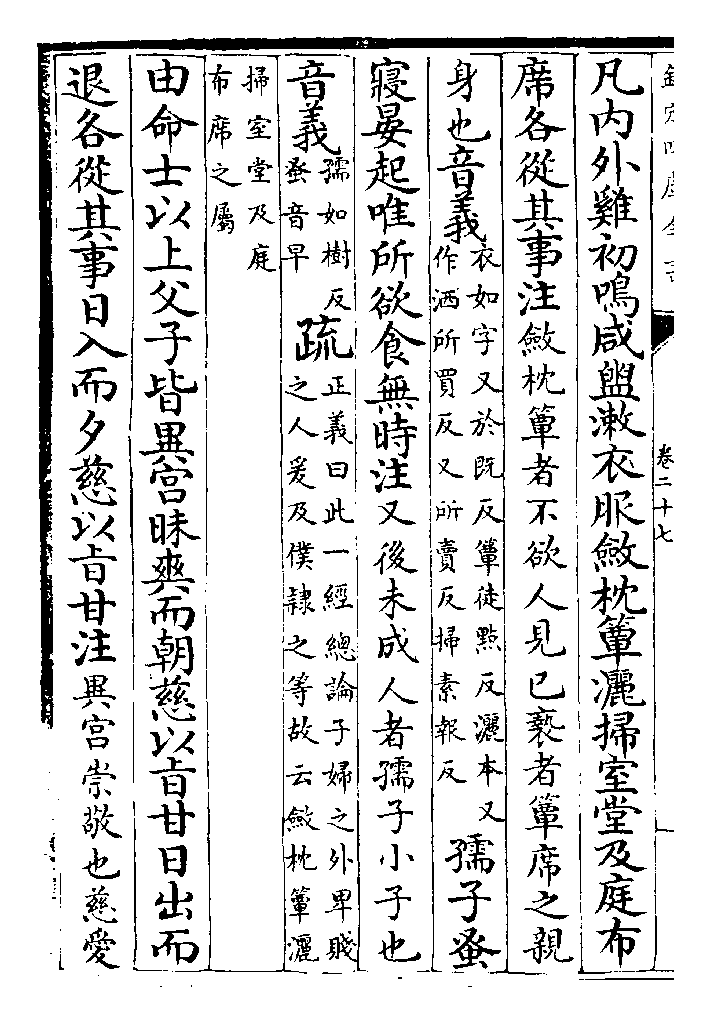 欽定四庫全書
卷二十七
凡内外雞初鳴咸盥漱衣服斂枕簟灑掃室堂及庭布
席各從其事注斂枕簟者不欲人見已褻者簟席之親
身也音義衣如字又於既反簟徒點反灑本又
作洒所買反又所賣反掃素報反孺子蚤
寢晏起唯所欲食無時注又後未成人者孺子小子也
音義孺如樹反
蚤音早疏正義曰此一經總論子婦之外卑賤
之人爰及僕隷之等故云斂枕簟灑
掃室堂及庭
布席之屬
由命士以上父子皆異宫昧爽而朝慈以㫖甘日出而
退各從其事日入而夕慈以㫖甘注異宫崇敬也慈愛